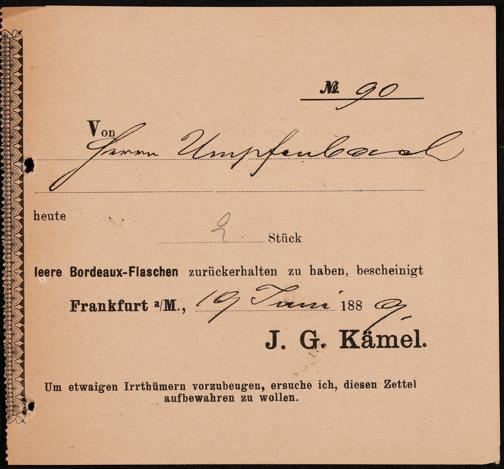 № 90
Von
Herrn Umpfenbach
heute
2 Stück
leere Bordeaux-Flaschen zurückerhalten zu haben, bescheinigt
Frankfurt a/M., 19 Juni 1889.
J. G. Kämel.
Um etwaigen Irrthümern vorzubeugen, ersuche ich, diesen Zettel
aufbewahren zu wollen.